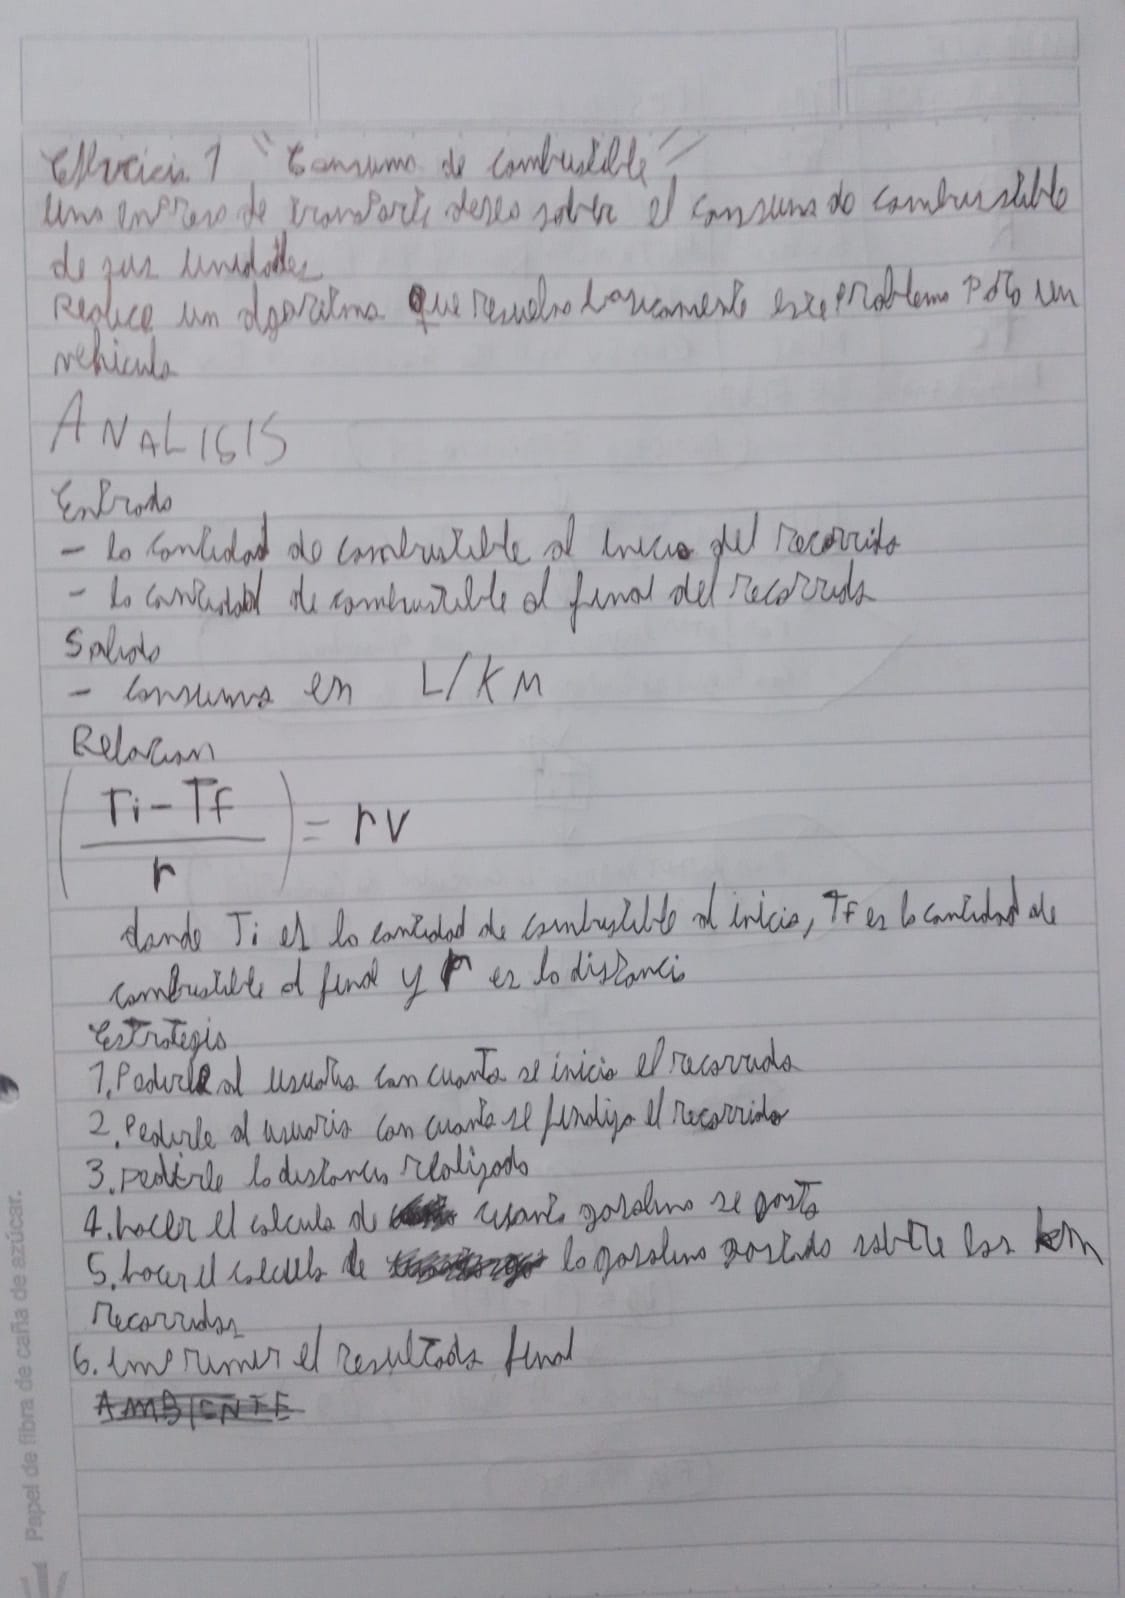 Ejercicio 1 "Consumo de combustible"
Una empresa de transporte desea saber el consumo de combustible
de sus unidades
Realice un algoritmo que resuelva basicamente este problema para un
vehiculo
ANALISIS
Entrada
- la cantidad de combustible al inicio del recorrido
- la cantidad de combustible al final del recorrido
Salida
- consumo en L/KM
Relacion
(Ti - Tf / r) = rv
donde Ti es la cantidad de combustible al inicio, Tf es la cantidad de
combustible al final y r es la distancia
Estrategia
1. Pedirle al usuario con cuanto se inicia el recorrido
2. Pedirle al usuario con cuanto se finalizo el recorrido
3. pedirle la distancia realizada
4. hacer el calculo de cuanta gasolina se gasto
5. hacer el calculo de la gasolina gastada sobre los km
recorridos
6. imprimir el resultado final
AMBIENTE
Papel de fibra de caña de azúcar.